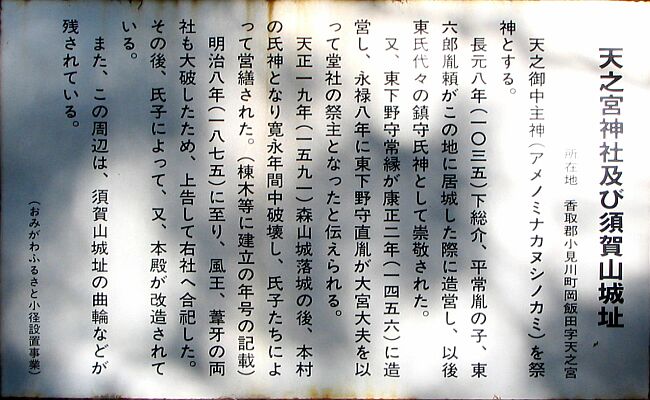 天之宮神社及び須賀山城址
所在地　香取郡小見川町岡飯田字天之宮
天之御中主神（アメノミナカヌシノカミ）を祭
神とする。
長元八年（一〇三五）下総介、平常胤の子、東
六郎胤頼がこの地に居城した際に造営し、以後
東氏代々の鎮守氏神として崇敬された。
又、東下野守常縁が康正二年（一四五六）に造
営し、永禄八年に東下野守直胤が大宮大夫を以
って堂社の祭主となったと伝えられる。
天正一九年（一五九一）森山城落城の後、本村
の氏神となり寛永年間中破壊し、氏子たちによ
って営繕された。（棟木等に建立の年号の記載）
明治八年（一八七五）に至り、風王、葦牙の両
社も大破したため、上告して右社へ合祀した。
その後、氏子によって、又、本殿が改造されて
いる。
また、この周辺は、須賀山城址の曲輪などが
残されている。
（おみがわふるさと小径設置事業）